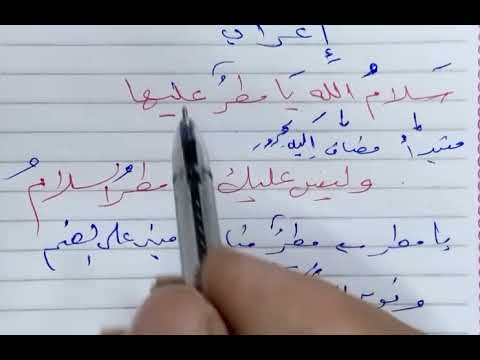 إعراب
سَلامُ الله يَا مطرٌ عليها
مبتدأ مضاف إليه مجرور
وليس عليك مطرُ السلامُ
يا مطر مطرٌ مبني على الضم